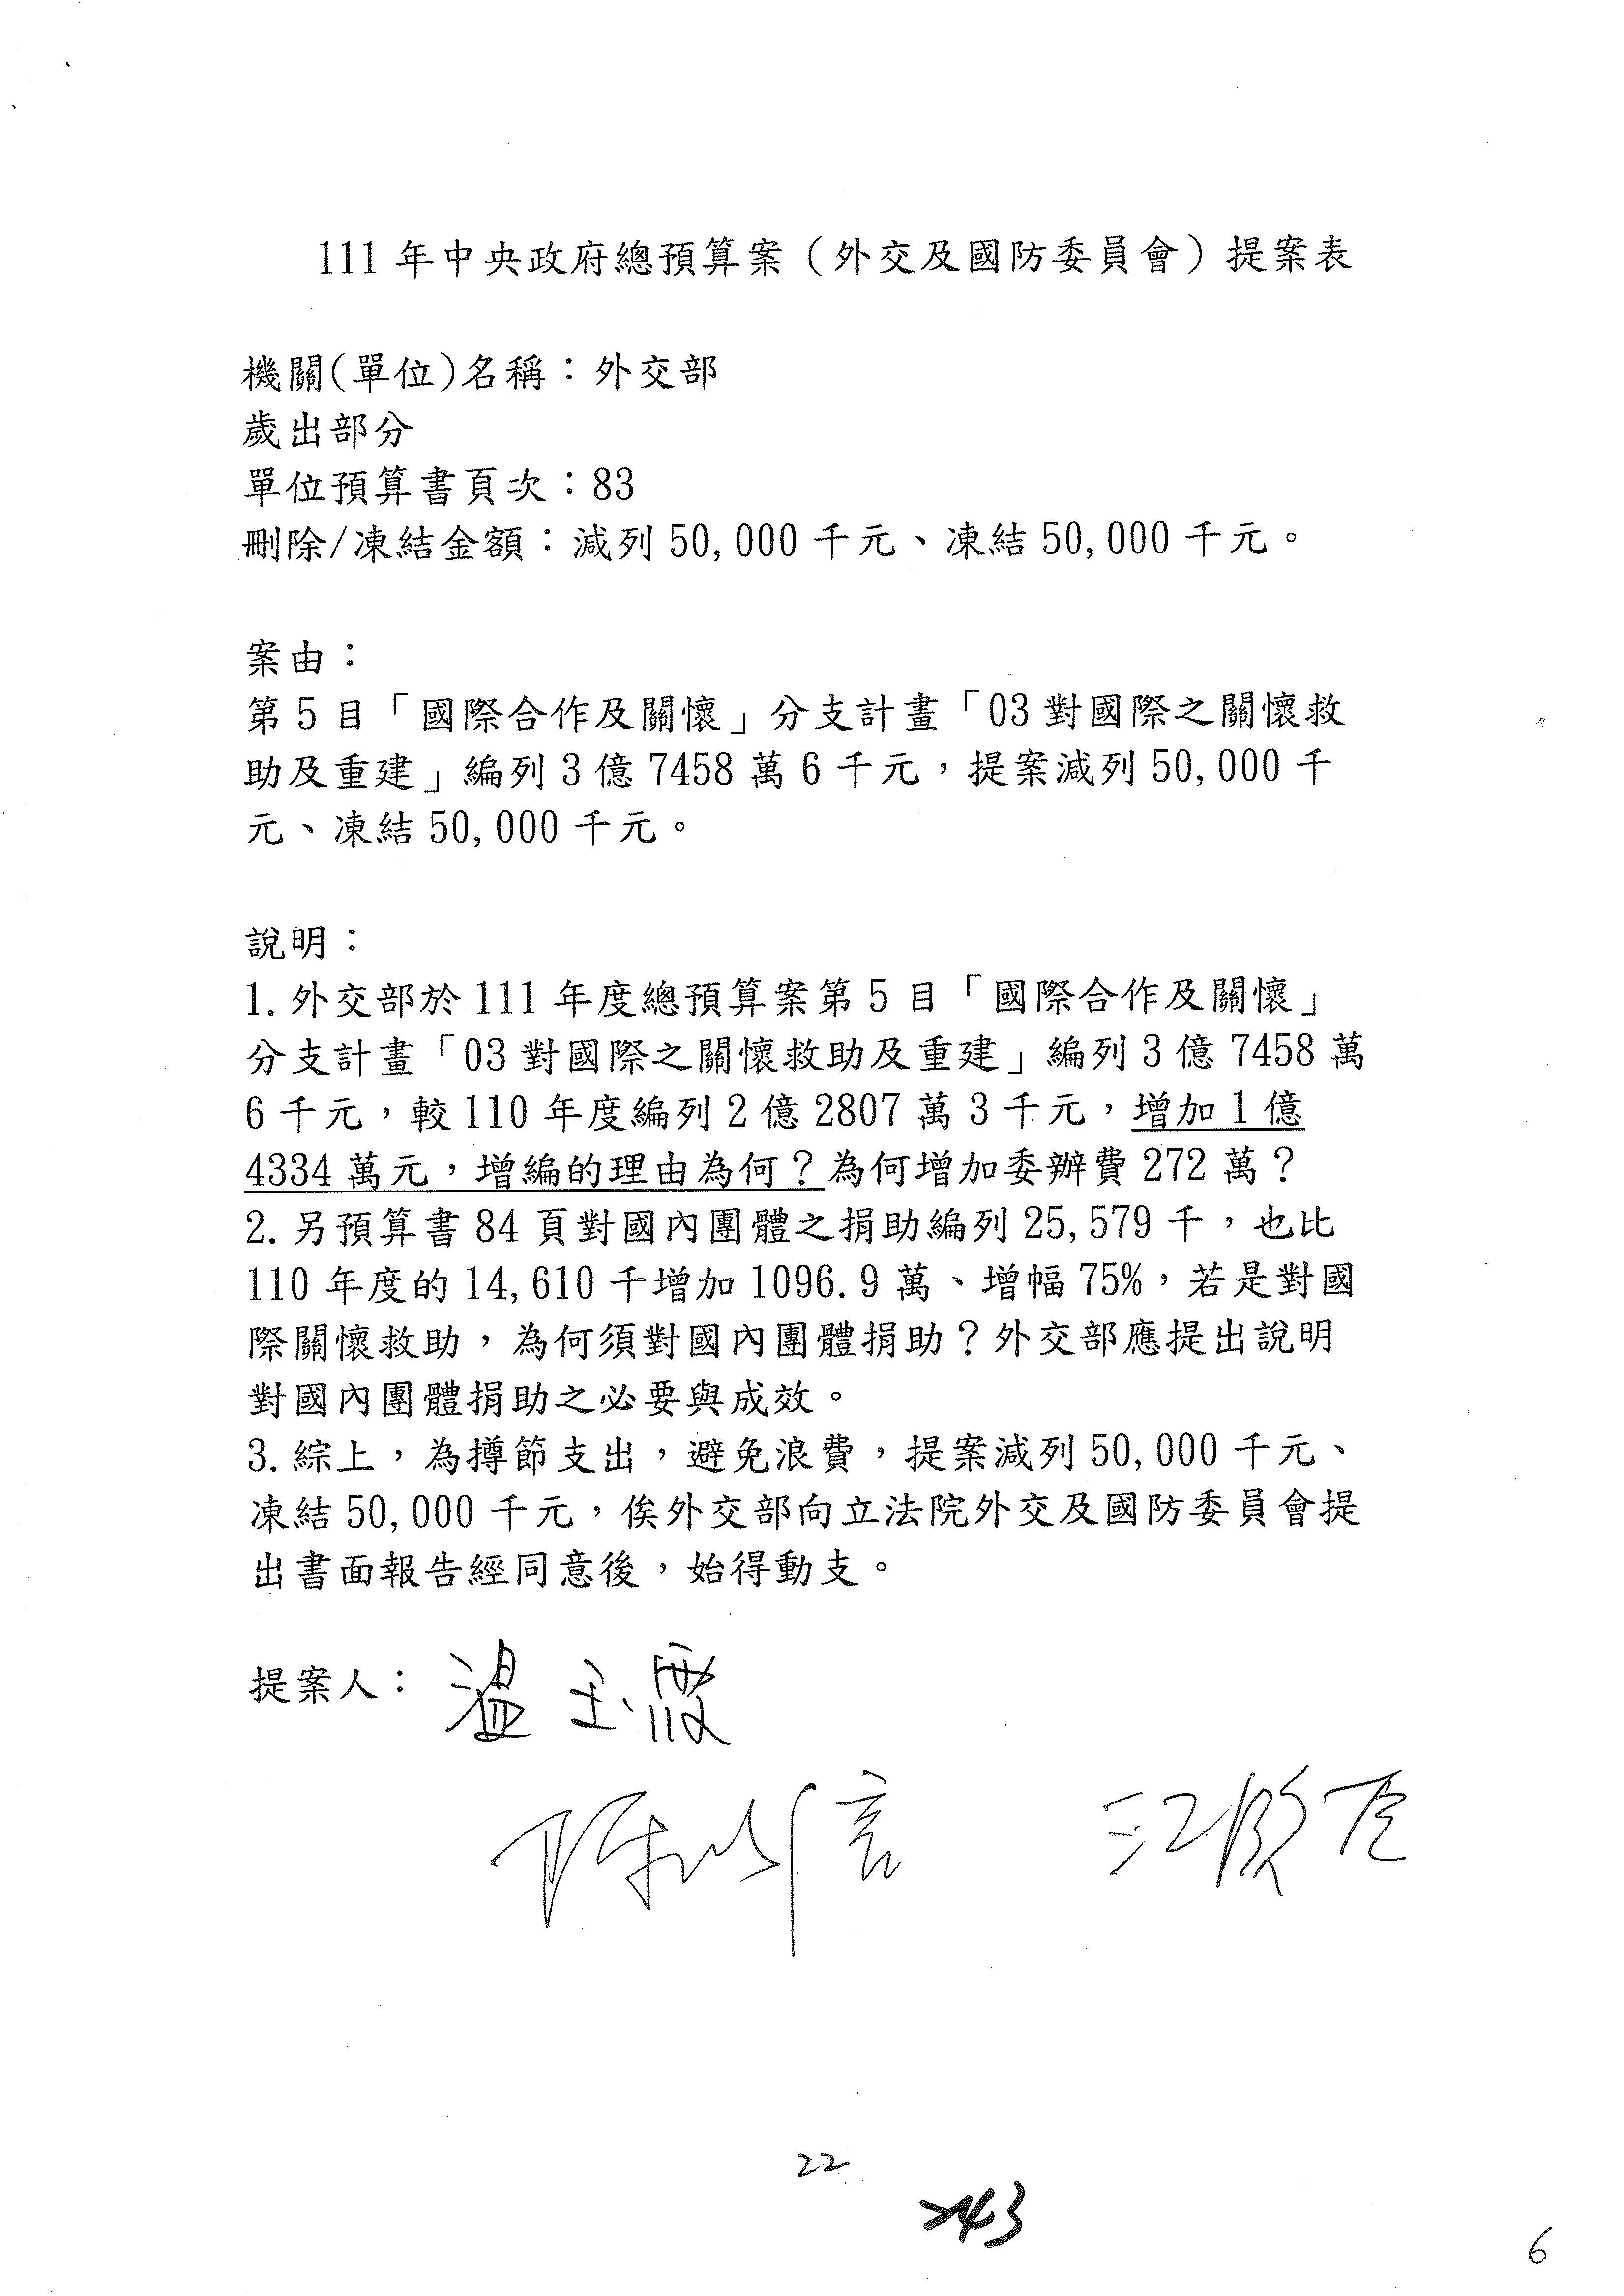 111年中央政府總預算案（外交及國防委員會）提案表
機關(單位)名稱：外交部
歲出部分
單位預算書頁次：83
刪除/凍結金額：減列50,000千元、凍結50,000千元。
案由：
第5目「國際合作及關懷」分支計畫「03對國際之關懷救
助及重建」編列3億7458萬6千元，提案減列50,000千
元、凍結50,000千元。
說明：
1.外交部於111年度總預算案第5目「國際合作及關懷」
分支計畫「03對國際之關懷救助及重建」編列3億7458萬
6千元，較110年度編列2億2807萬3千元，增加1億
4334萬元，增編的理由為何？為何增加委辦費272萬？
2.另預算書84頁對國內團體之捐助編列25,579千，也比
110年度的14,610千增加1096.9萬、增幅75%，若是對國
際關懷救助，為何須對國內團體捐助？外交部應提出說明
對國內團體捐助之必要與成效。
3.綜上，為撙節支出，避免浪費，提案減列50,000千元、
凍結50,000千元，俟外交部向立法院外交及國防委員會提
出書面報告經同意後，始得動支。
提案人：溫玉霞
陳以信 江啟臣
22
243
6